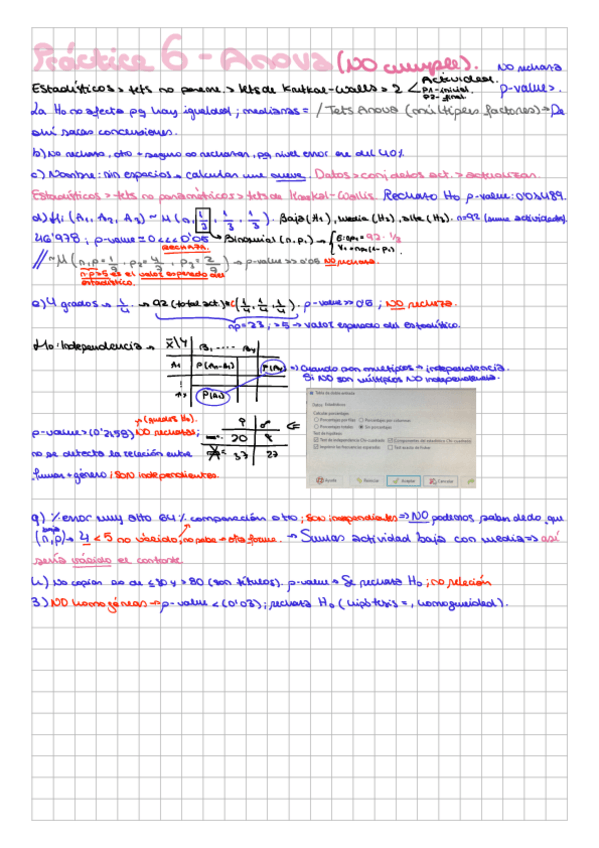 Práctica 6 - Anova (NO cumple).
NO rechaza
Estadísticos > tets no param. > tets de Kruskal-Walls > 2 < Actividad. P1-inicial P2-final p-value >.
La Ho no afecta pq hay igualdad; medianas = / Tets Anova (múltiples factores) → De
ahí sacas conclusiones.
b) No rechazo, dto + seguro es rechazar, pq nivel error era del 40%
c) Nombre: sin espacios → calcular una nueva. Datos > conj datos act. > actualizar.
Estadísticos > tets no paramétricos > tets de Kruskal-Wallis. Rechazo Ho p-value: 0'03489.
d) Hi (A1, A2, A3) ~ M (n, 1/3, 1/3, 1/3). Baja (H1), media (H2), alta (H3). n=92 (actividades)
46'978; p-value ≈ 0 <<< 0'05 → Binomial (n, p).
Rechaza.
= 92 · 1/3
// ~ M (n, p = 1/9, p2 = 4/9, p3 = 2/9) → p-value >> 0'05 NO rechaza.
n·p>5 es el valor esperado del
estadístico.
e) 4 grados → 1/4. → 92 (total act) · (1/4, 1/4, 1/4). p-value >> 0'5; NO rechaza.
np = 23; > 5 → valor esperado del estadístico.
Ho: Independencia →
X\Y B1, .... By
A1 P(A1-B1) P(A1) => Cuando son múltiplos → independencia.
Si NO son múltiplos NO independencia.
P(B1)
→ (guardas Ho).
p-value > (0'2158) NO rechazas;
no se detecta la relación entre
fumar + género; son independientes.
♀ ♂
20 8
37 27
Tabla de doble entrada
Datos Estadísticos
Calcular porcentajes
Porcentajes por filas Porcentajes por columnas
Porcentajes totales Sin porcentajes
Test de hipótesis
Test de independencia Chi-cuadrado Componentes del estadístico Chi-cuadrado
Imprimir las frecuencias esperadas Test exacto de Fisher
Ayuda Reiniciar Aceptar Cancelar
g) % error muy alto 64% comparación otro; son independientes => NO podemos saber dado que
baja
(n, p) → 4 < 5 no válido, no probe → otra forma. → Sumas actividad baja con media => así
sería válido el contraste.
h) No copiar eso de ≤ 30 y > 80 (son títulos). p-value → Se rechaza Ho; no relación
3) NO homogéneas → p-value < (0'03); rechaza Ho (hipótesis =, homogeneidad).